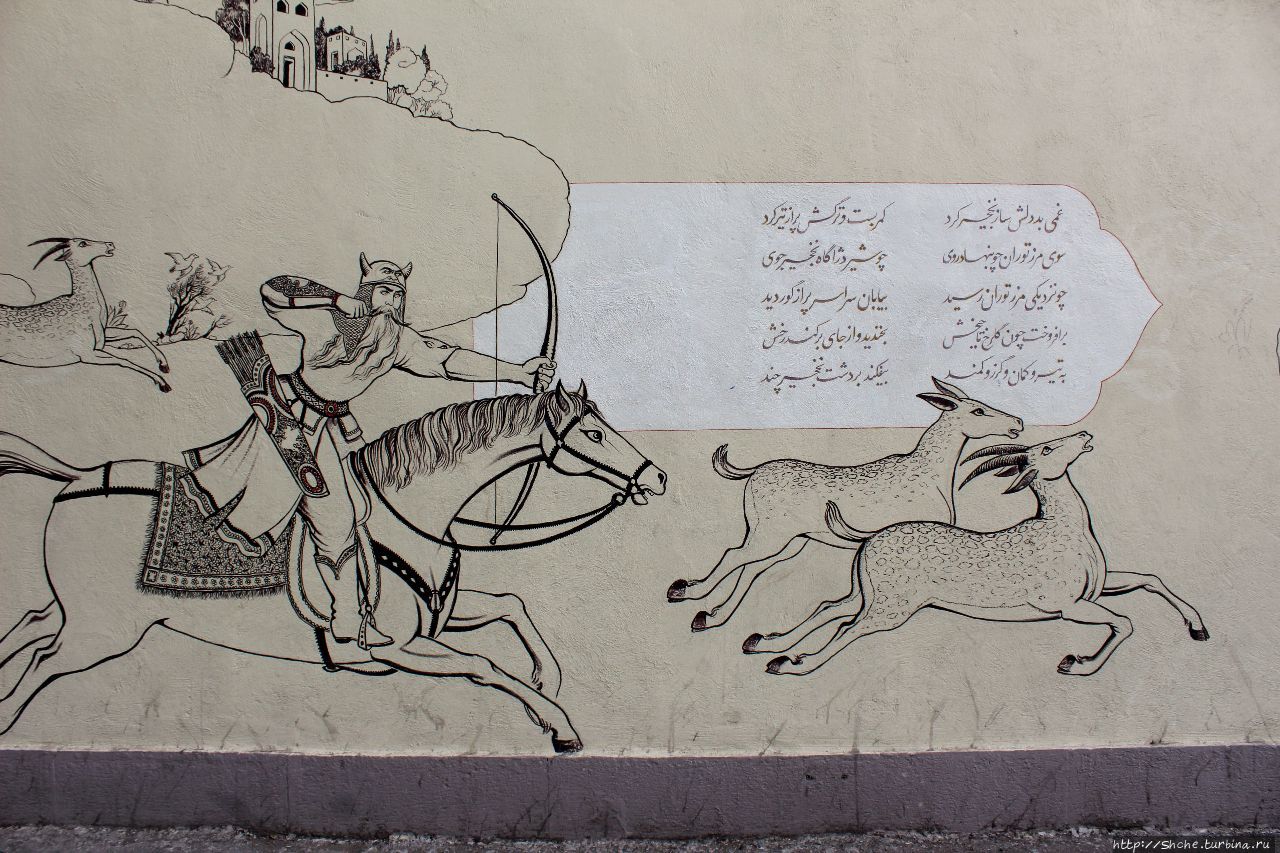 غمی بد دلش ساز نخجیر کرد کمر بست و ترکش پر از تیر کرد
سوی مرز توران چو بنهاد روی چو شیر دژآگاه نخجیر جوی
چو نزدیکی مرز توران رسید بیابان سراسر پر از گور دید
برافروخت چون گل رخ تاج‌بخش بخندید و از جای برکند رخش
به تیر و کمان و گرز و کمند بیفکند بر دشت نخجیر چند
http://Shche.turbina.ru